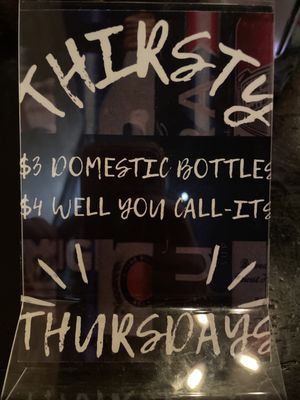 THIRSTY
$3 DOMESTIC BOTTLES
$4 WELL YOU CALL-ITS
THURSDAYS